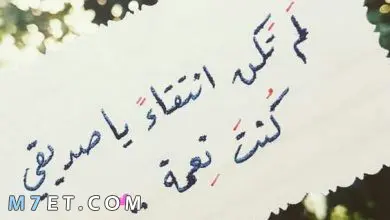 لَم تَكن انتقاءً يا صديقي
كُنتَ نِعمة ..
M7ET.COM